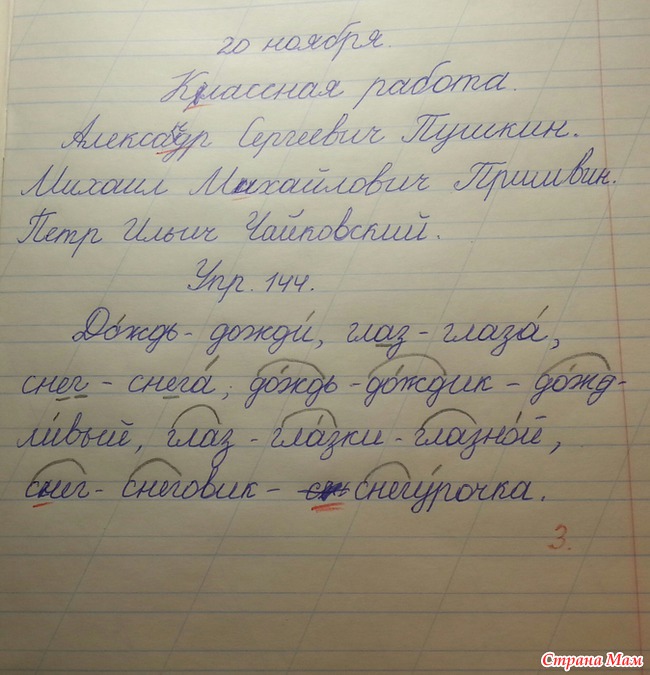 20 ноября.
Классная работа.
Александр Сергеевич Пушкин.
Михаил Михайлович Пришвин.
Петр Ильич Чайковский.
Упр. 144.
До́ждь - дожди́, глаз - глаза́,
снег - снега́; до́ждь - до́ждик - дожд-
ли́вый, глаз - гла́зки - глазно́й,
снег - снеговик - снегу́рочка.
3.
Страна Мам